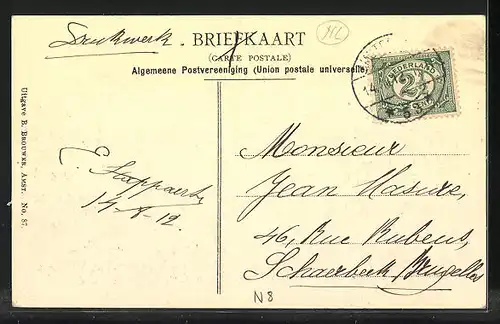 Drukwerk. BRIEFKAART
(CARTE POSTALE)
Algemeene Postvereeniging (Union postale universelle)
ML
NEDERLAND
2½
Uitgave E. BROUWER, AMST. No. 87.
E.
14-8-12
Monsieur
Jean Hasure,
46, Rue Rubens,
Schaerbeek /Bruxelles
N8